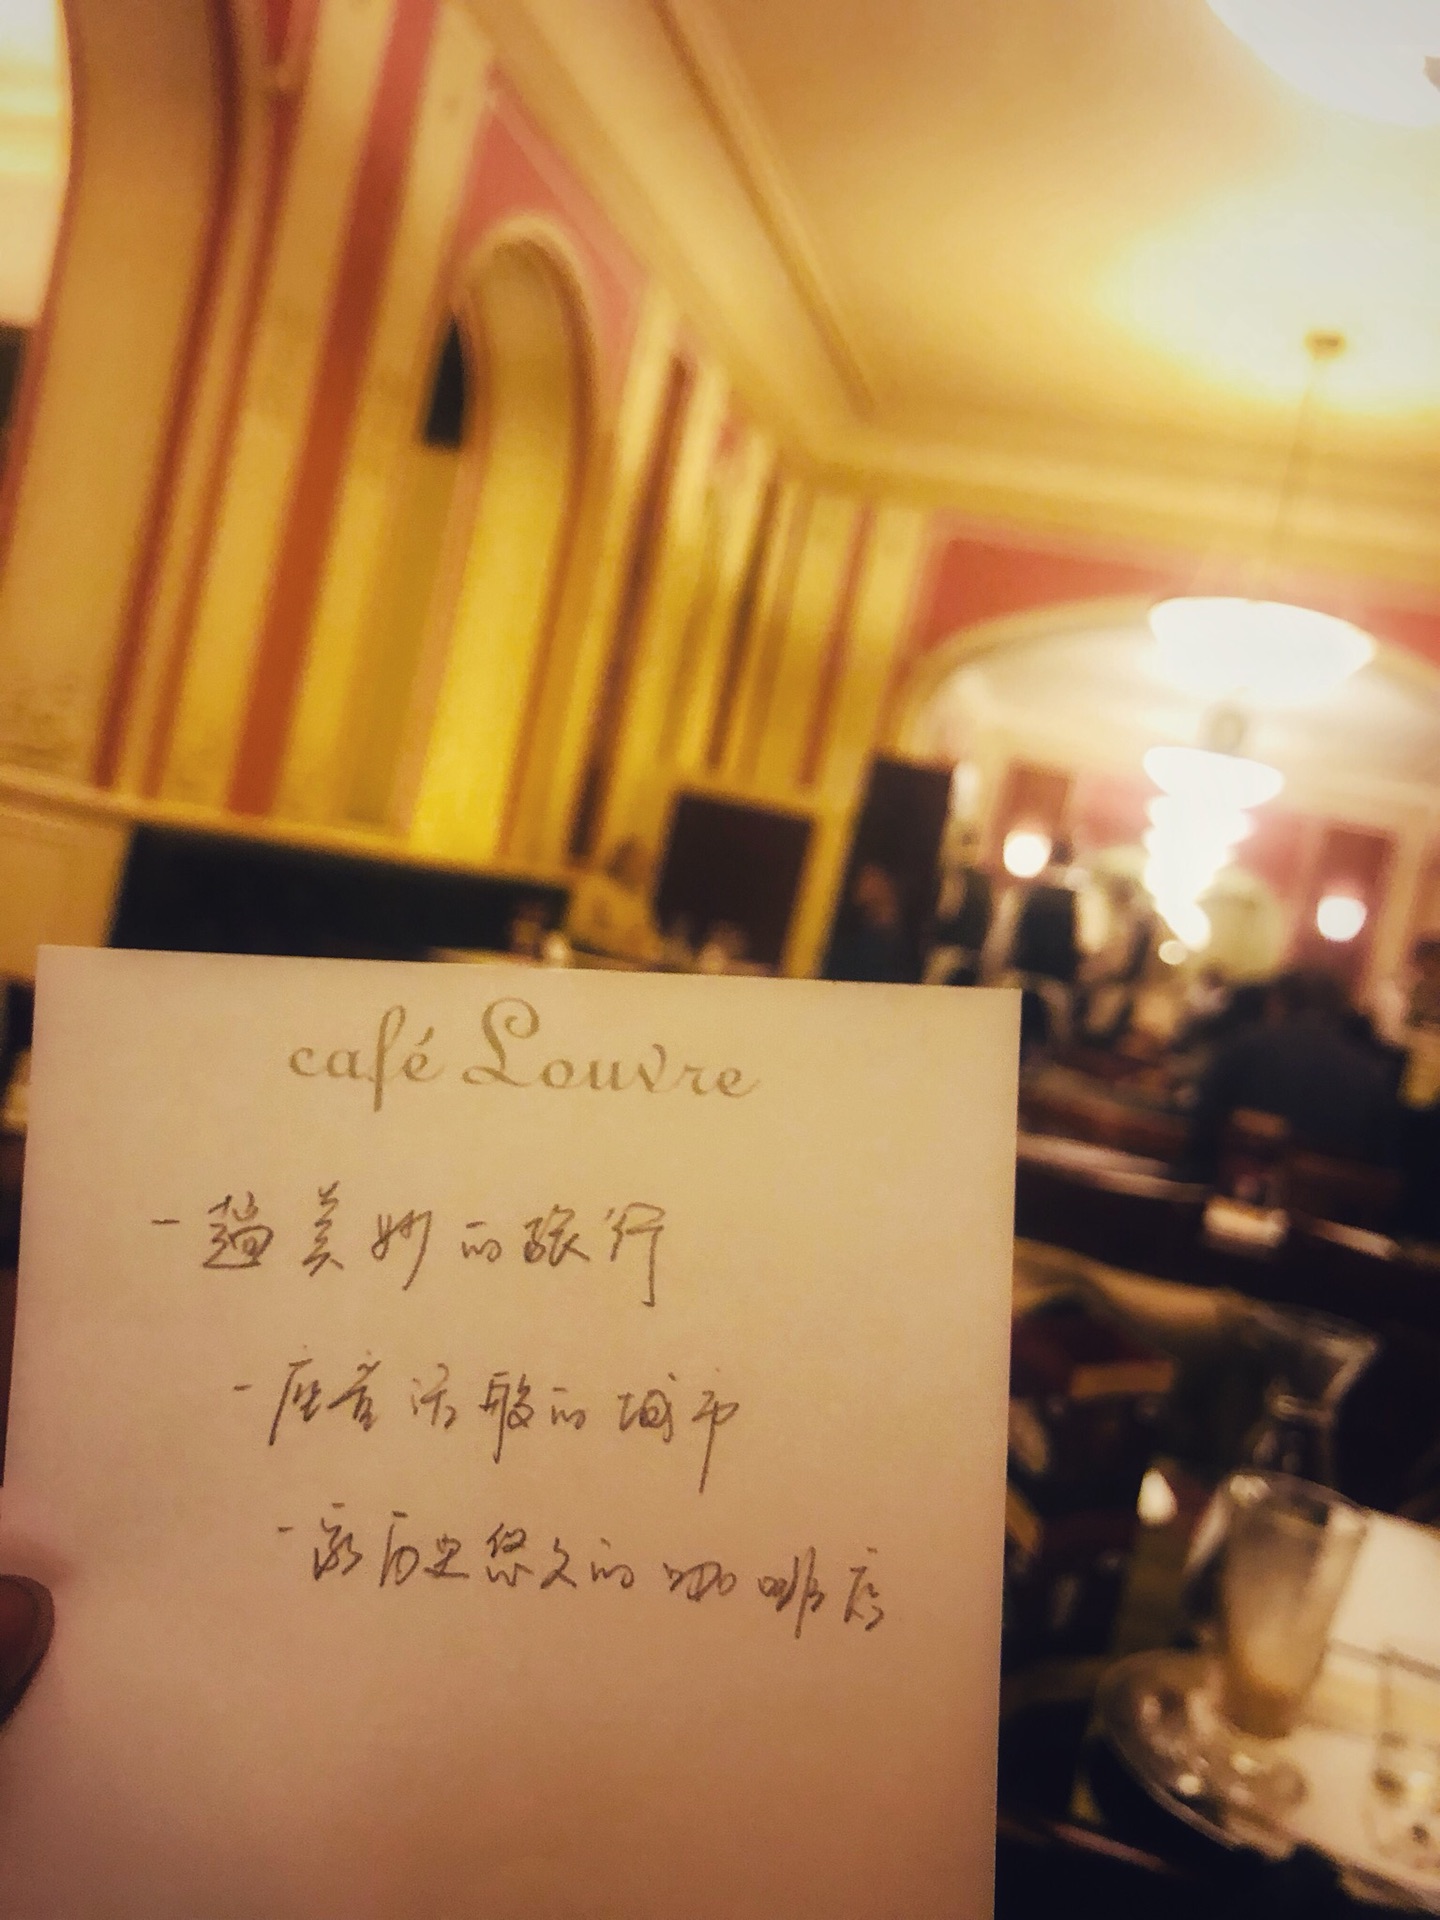 café Louvre
一趟美妙的旅行
一座音活般的城市
一家历史悠久的咖啡店